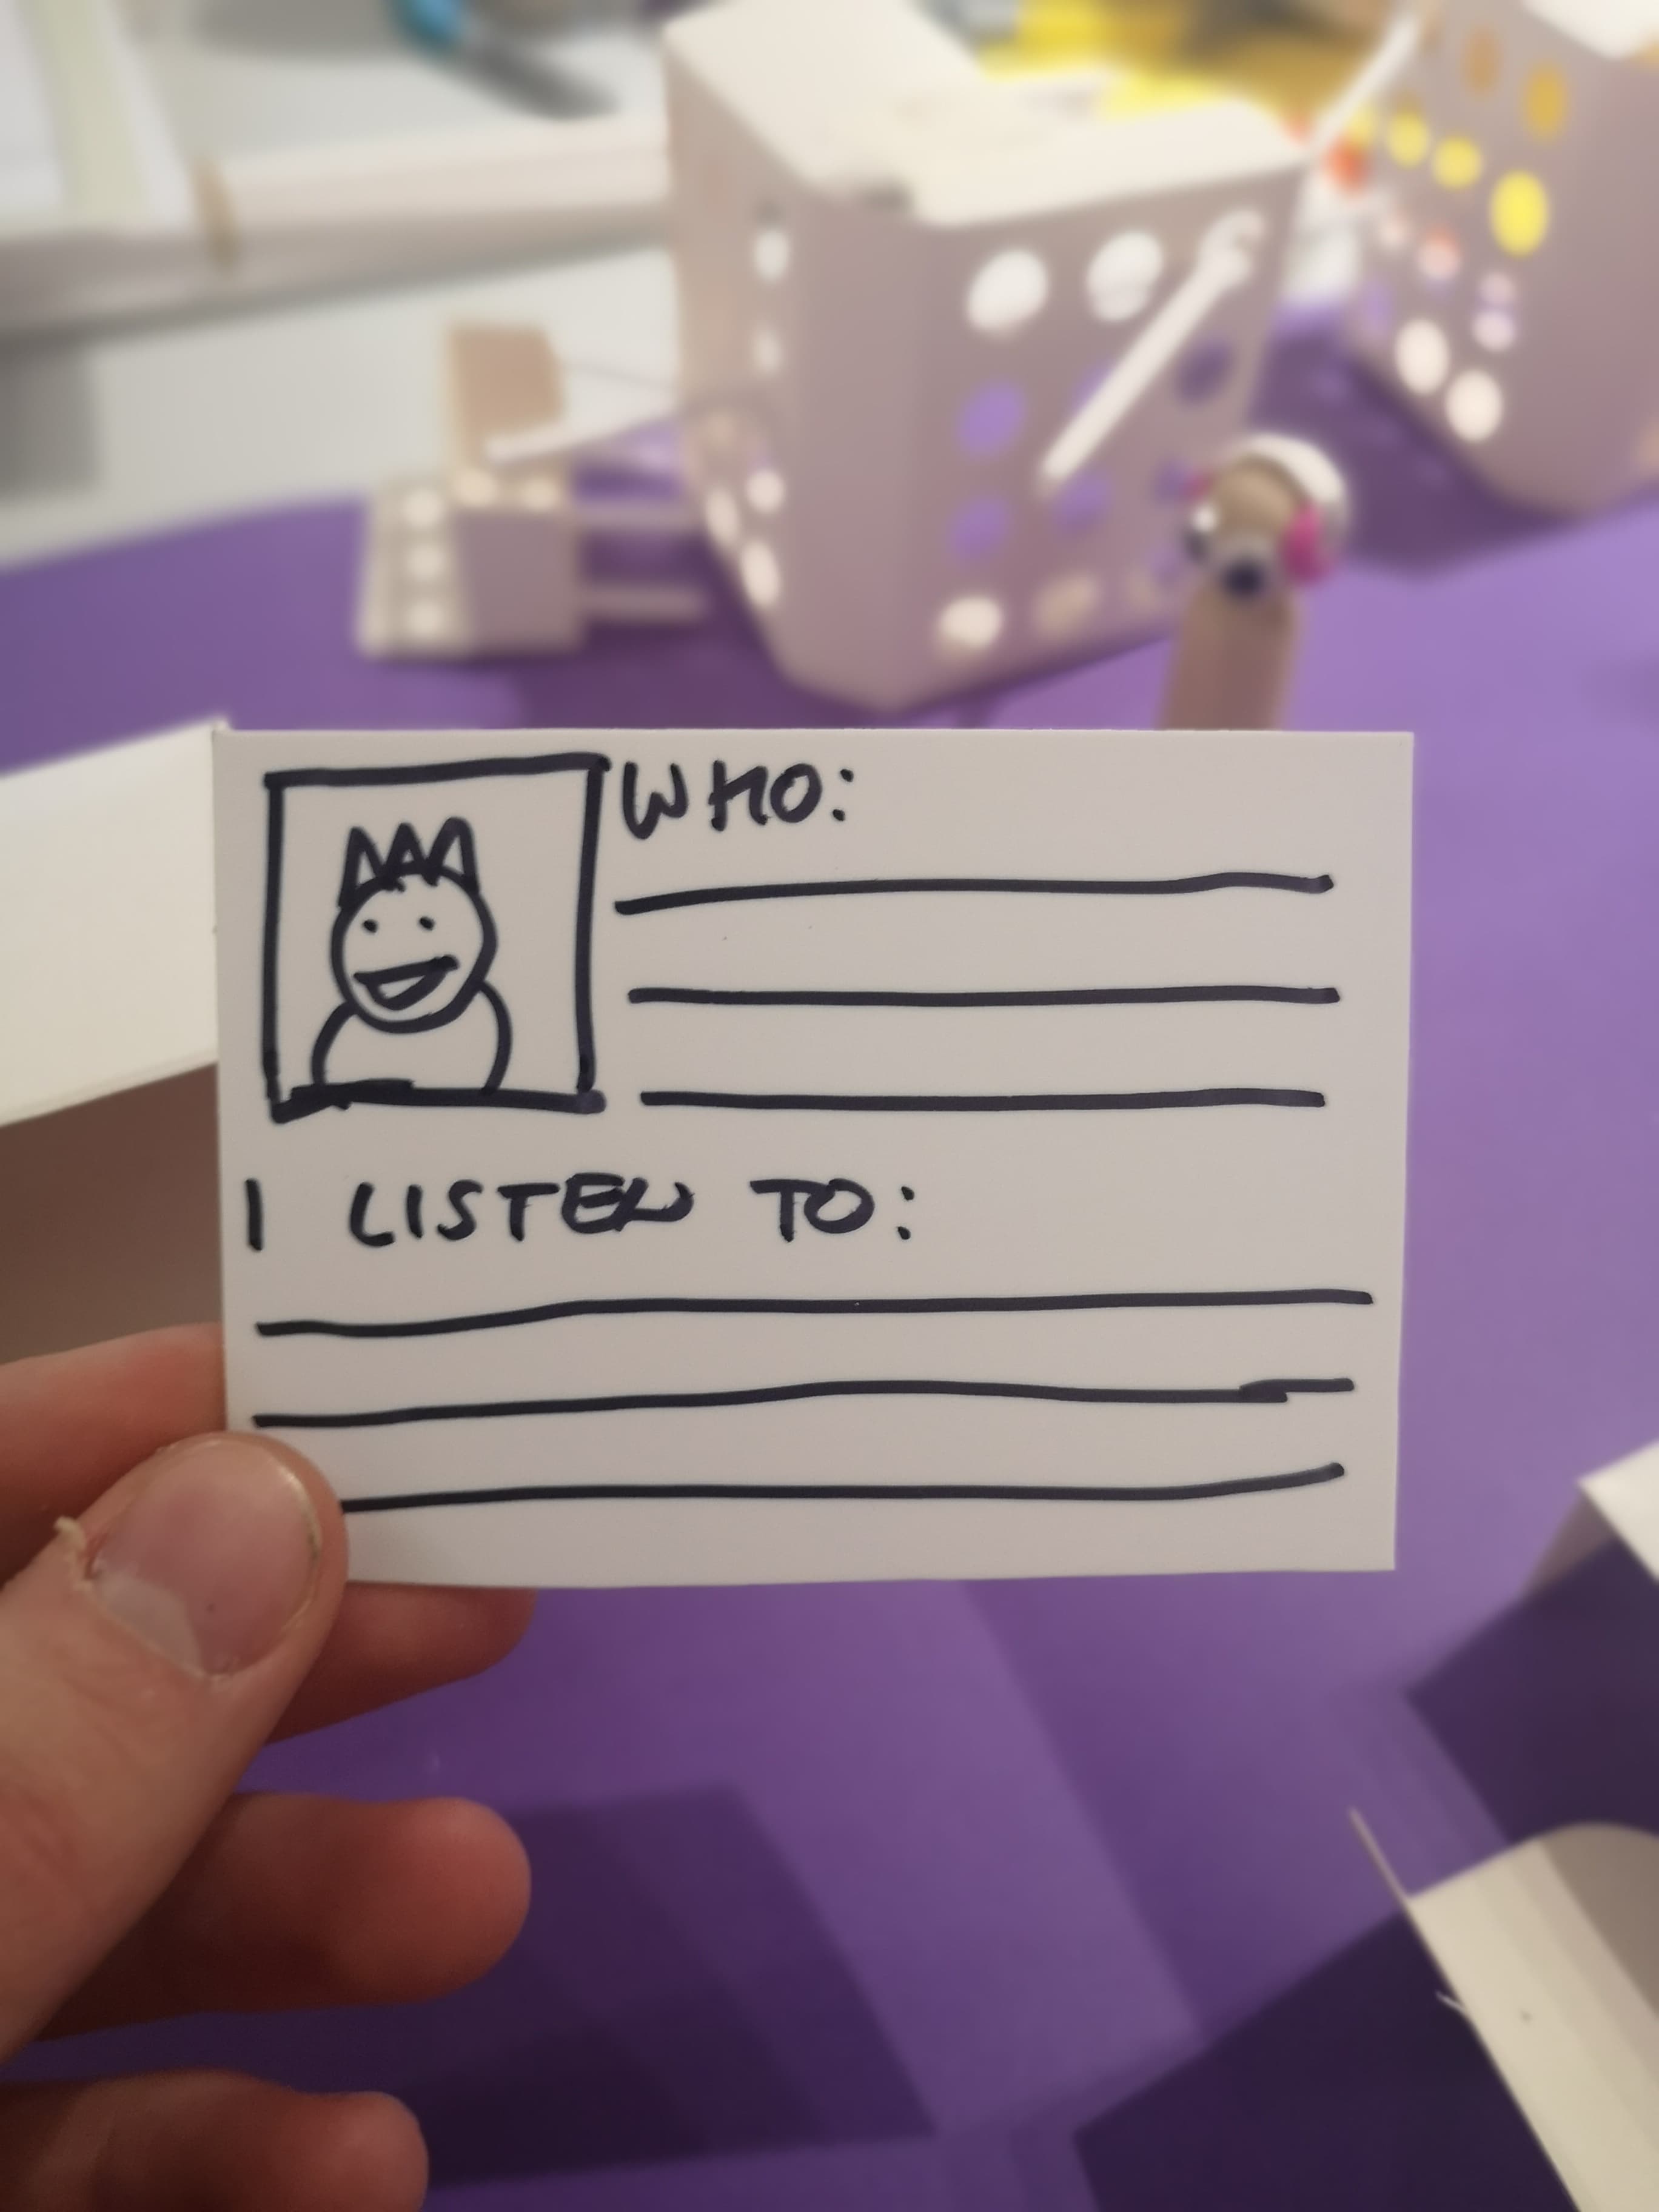 WHO:
I LISTEN TO: